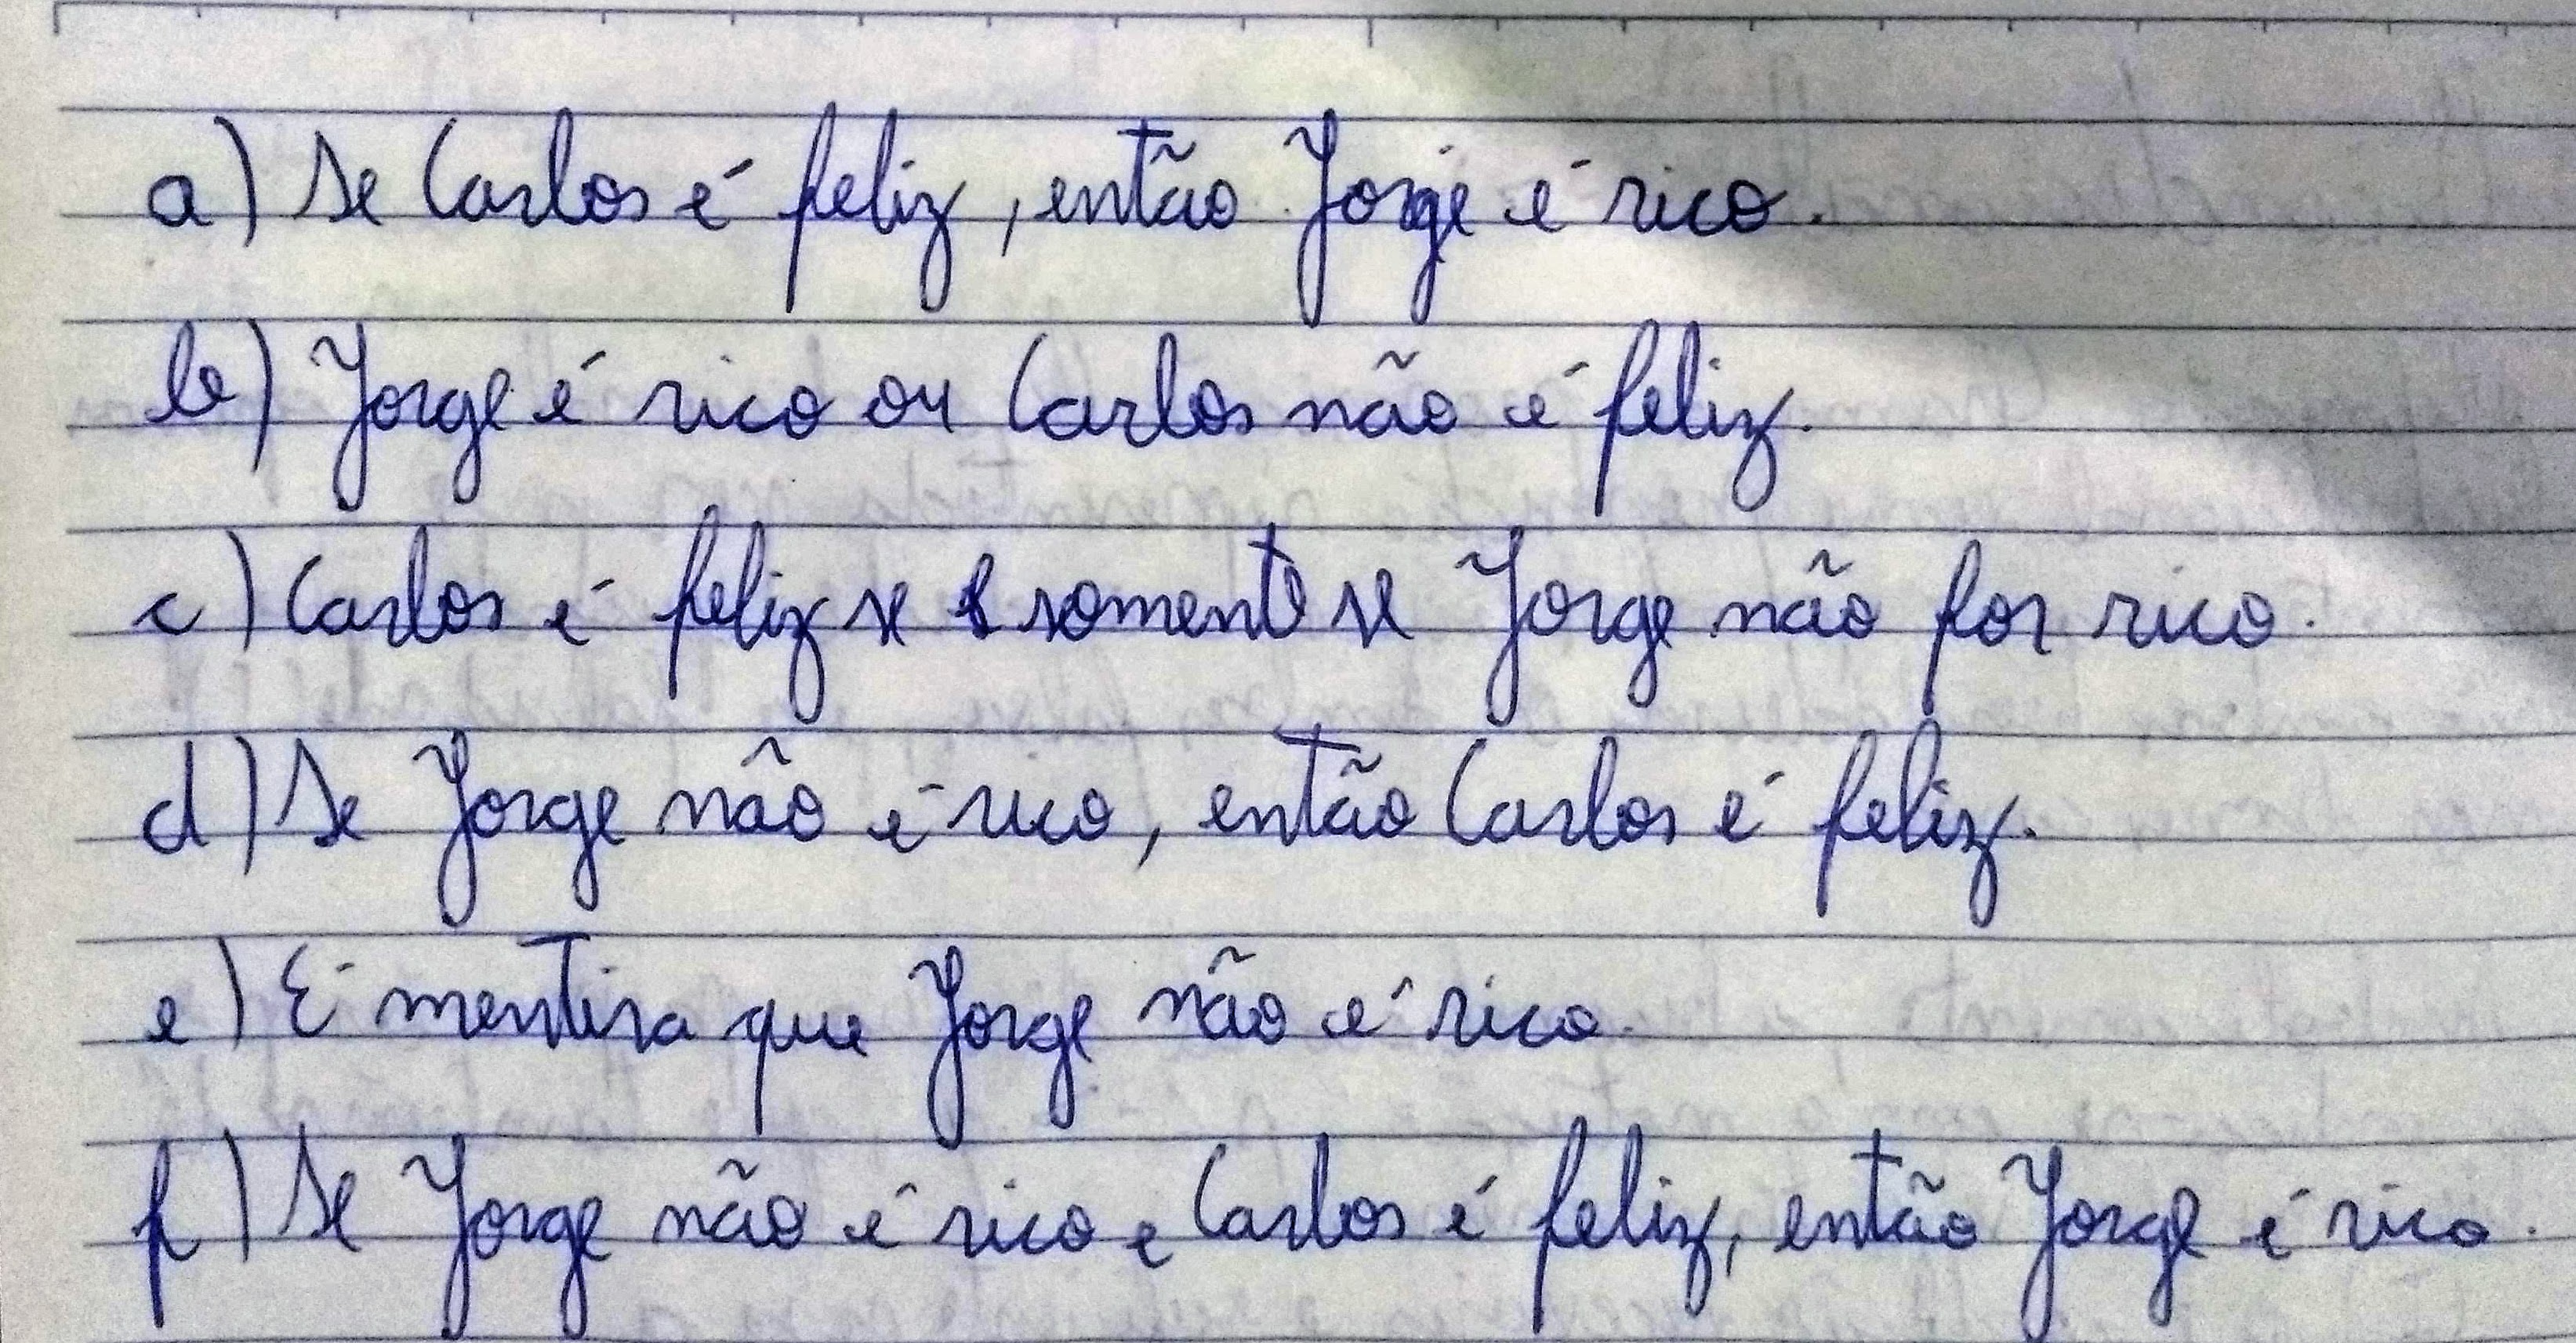 a) Se Carlos é feliz, então Jorge é rico.
b) Jorge é rico ou Carlos não é feliz.
c) Carlos é feliz se e somente se Jorge não for rico.
d) Se Jorge não é rico, então Carlos é feliz.
e) É mentira que Jorge não é rico.
f) Se Jorge não é rico e Carlos é feliz, então Jorge é rico.